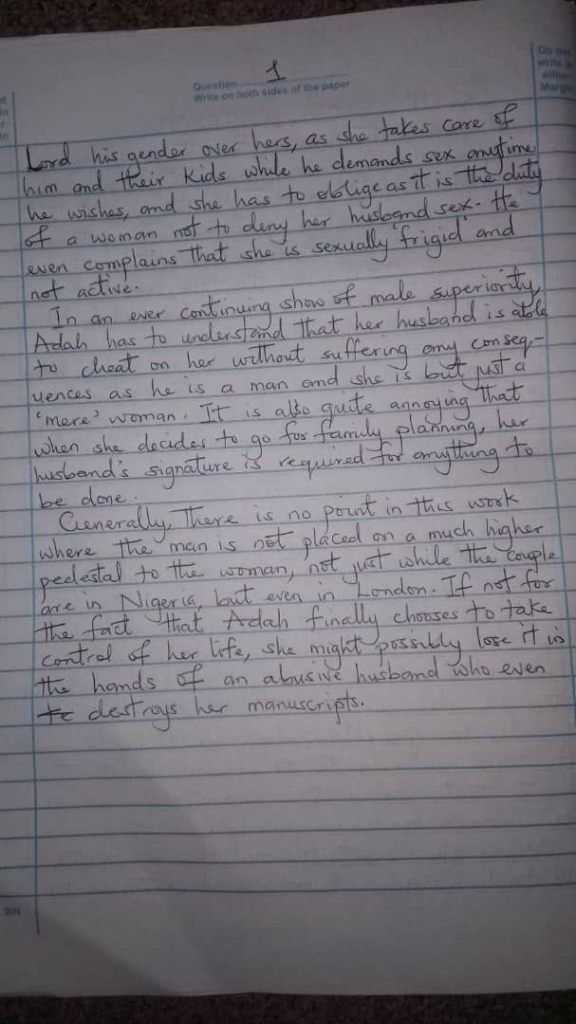 1
Question
Write on both sides of the paper
Do not
write in
either
Margin
Lord his gender over hers, as she takes care of
him and their kids while he demands sex anytime
he wishes, and she has to oblige as it is the duty
of a woman not to deny her husband sex. He
even complains that she is sexually 'frigid' and
not active.
In an ever continuing show of male superiority,
Adah has to understand that her husband is able
to cheat on her without suffering any conseq-
uences as he is a man and she is but just a
'mere' woman. It is also quite annoying that
when she decides to go for family planning, her
husband's signature is required for anything to
be done.
Generally, there is no point in this work
where the man is not placed on a much higher
pedestal to the woman, not just while the couple
are in Nigeria, but even in London. If not for
the fact that Adah finally chooses to take
control of her life, she might possibly lose it in
the hands of an abusive husband who even
destroys her manuscripts.